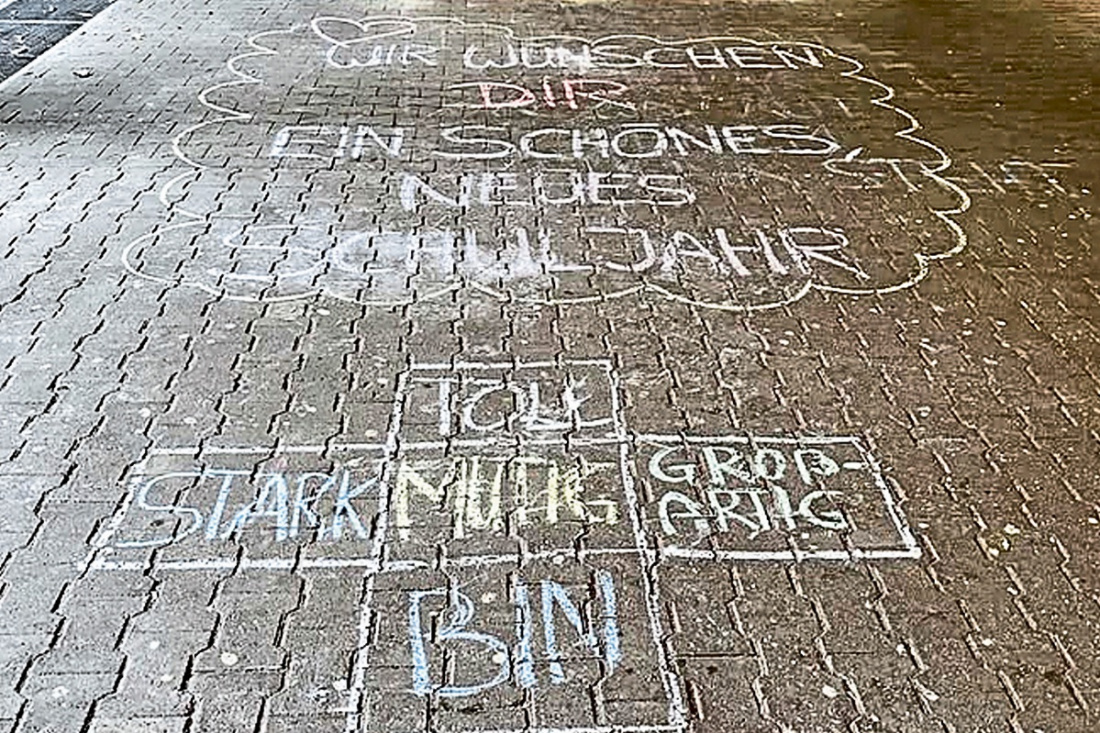 WIR WÜNSCHEN
DIR
EIN SCHÖNES,
NEUES
SCHULJAHR
TOLL
STARK MUTIG GROß-
ARTIG
BIN